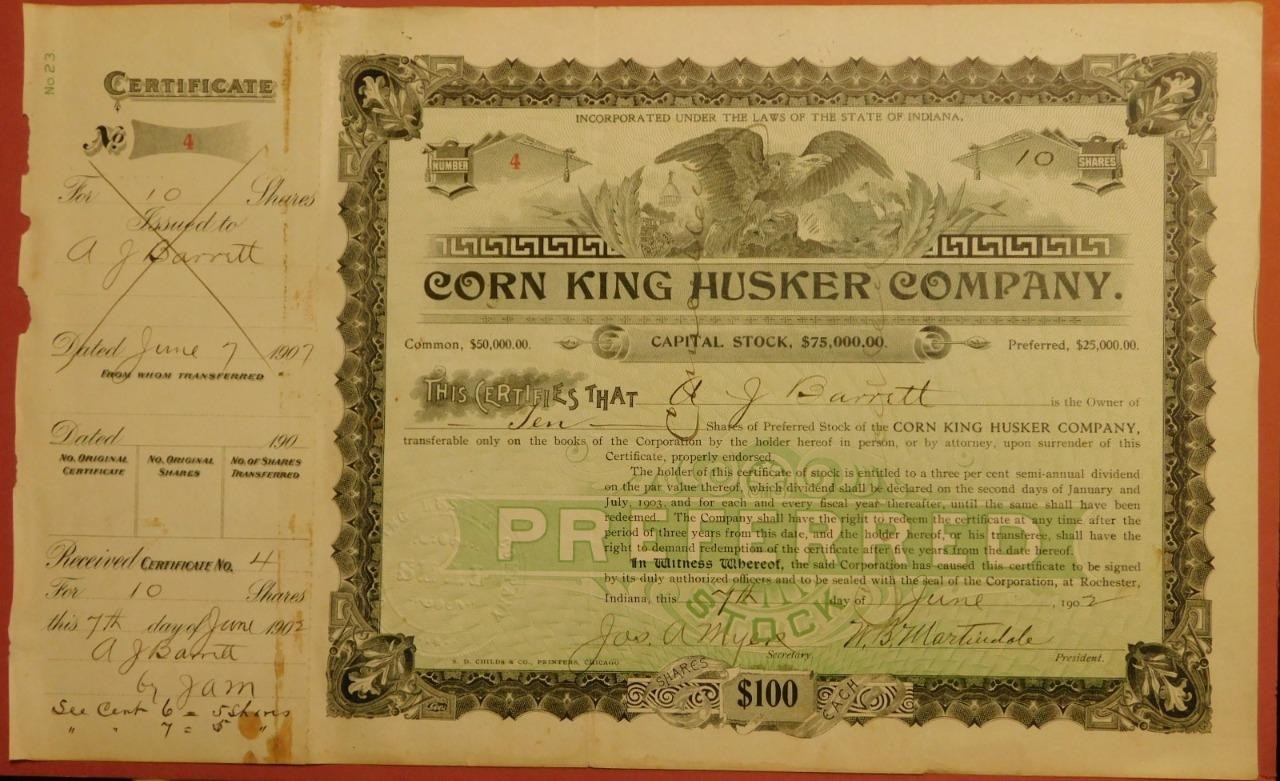 No 23.
CERTIFICATE
No. 4
For 10 Shares
Issued to
A J Barrett
Dated June 7 1907
FROM WHOM TRANSFERRED
Dated 190
NO. ORIGINAL CERTIFICATE
NO. ORIGINAL SHARES
NO. OF SHARES TRANSFERRED
Received CERTIFICATE NO. 4
For 10 Shares
this 7th day of June 1902
A J Barrett
by Jam
See Cert 6 = 5 Shares
" " 7 = 5 "
INCORPORATED UNDER THE LAWS OF THE STATE OF INDIANA.
NUMBER 4
10 SHARES
CORN KING HUSKER COMPANY.
Common, $50,000.00.
CAPITAL STOCK, $75,000.00.
Preferred, $25,000.00.
THIS CERTIFIES THAT A J Barrett is the Owner of
Ten Shares of Preferred Stock of the CORN KING HUSKER COMPANY,
transferable only on the books of the Corporation by the holder hereof in person, or by attorney, upon surrender of this
Certificate, properly endorsed.
The holder of this certificate of stock is entitled to a three per cent semi-annual dividend
on the par value thereof, which dividend shall be declared on the second days of January and
July, 1903, and for each and every fiscal year thereafter, until the same shall have been
redeemed. The Company shall have the right to redeem the certificate at any time after the
period of three years from this date, and the holder hereof, or his transferee, shall have the
right to demand redemption of the certificate after five years from the date hereof.
In Witness Whereof, the said Corporation has caused this certificate to be signed
by its duly authorized officers and to be sealed with the seal of the Corporation, at Rochester,
Indiana, this 7th day of June, 1902
PREFERRED
STOCK
Jos. A Myers
Secretary.
W. B. Martindale
President.
S. D. CHILDS & CO., PRINTERS, CHICAGO
SHARES $100 EACH